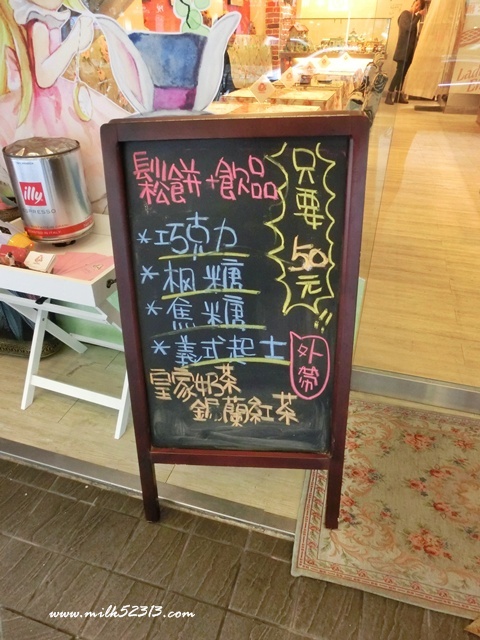 鬆餅+飲品
只要
50元!!
*巧克力
*楓糖
*焦糖
*義式起士
外帶
皇家奶茶
錫蘭紅茶
illy
ESPRESSO
www.milk52313.com